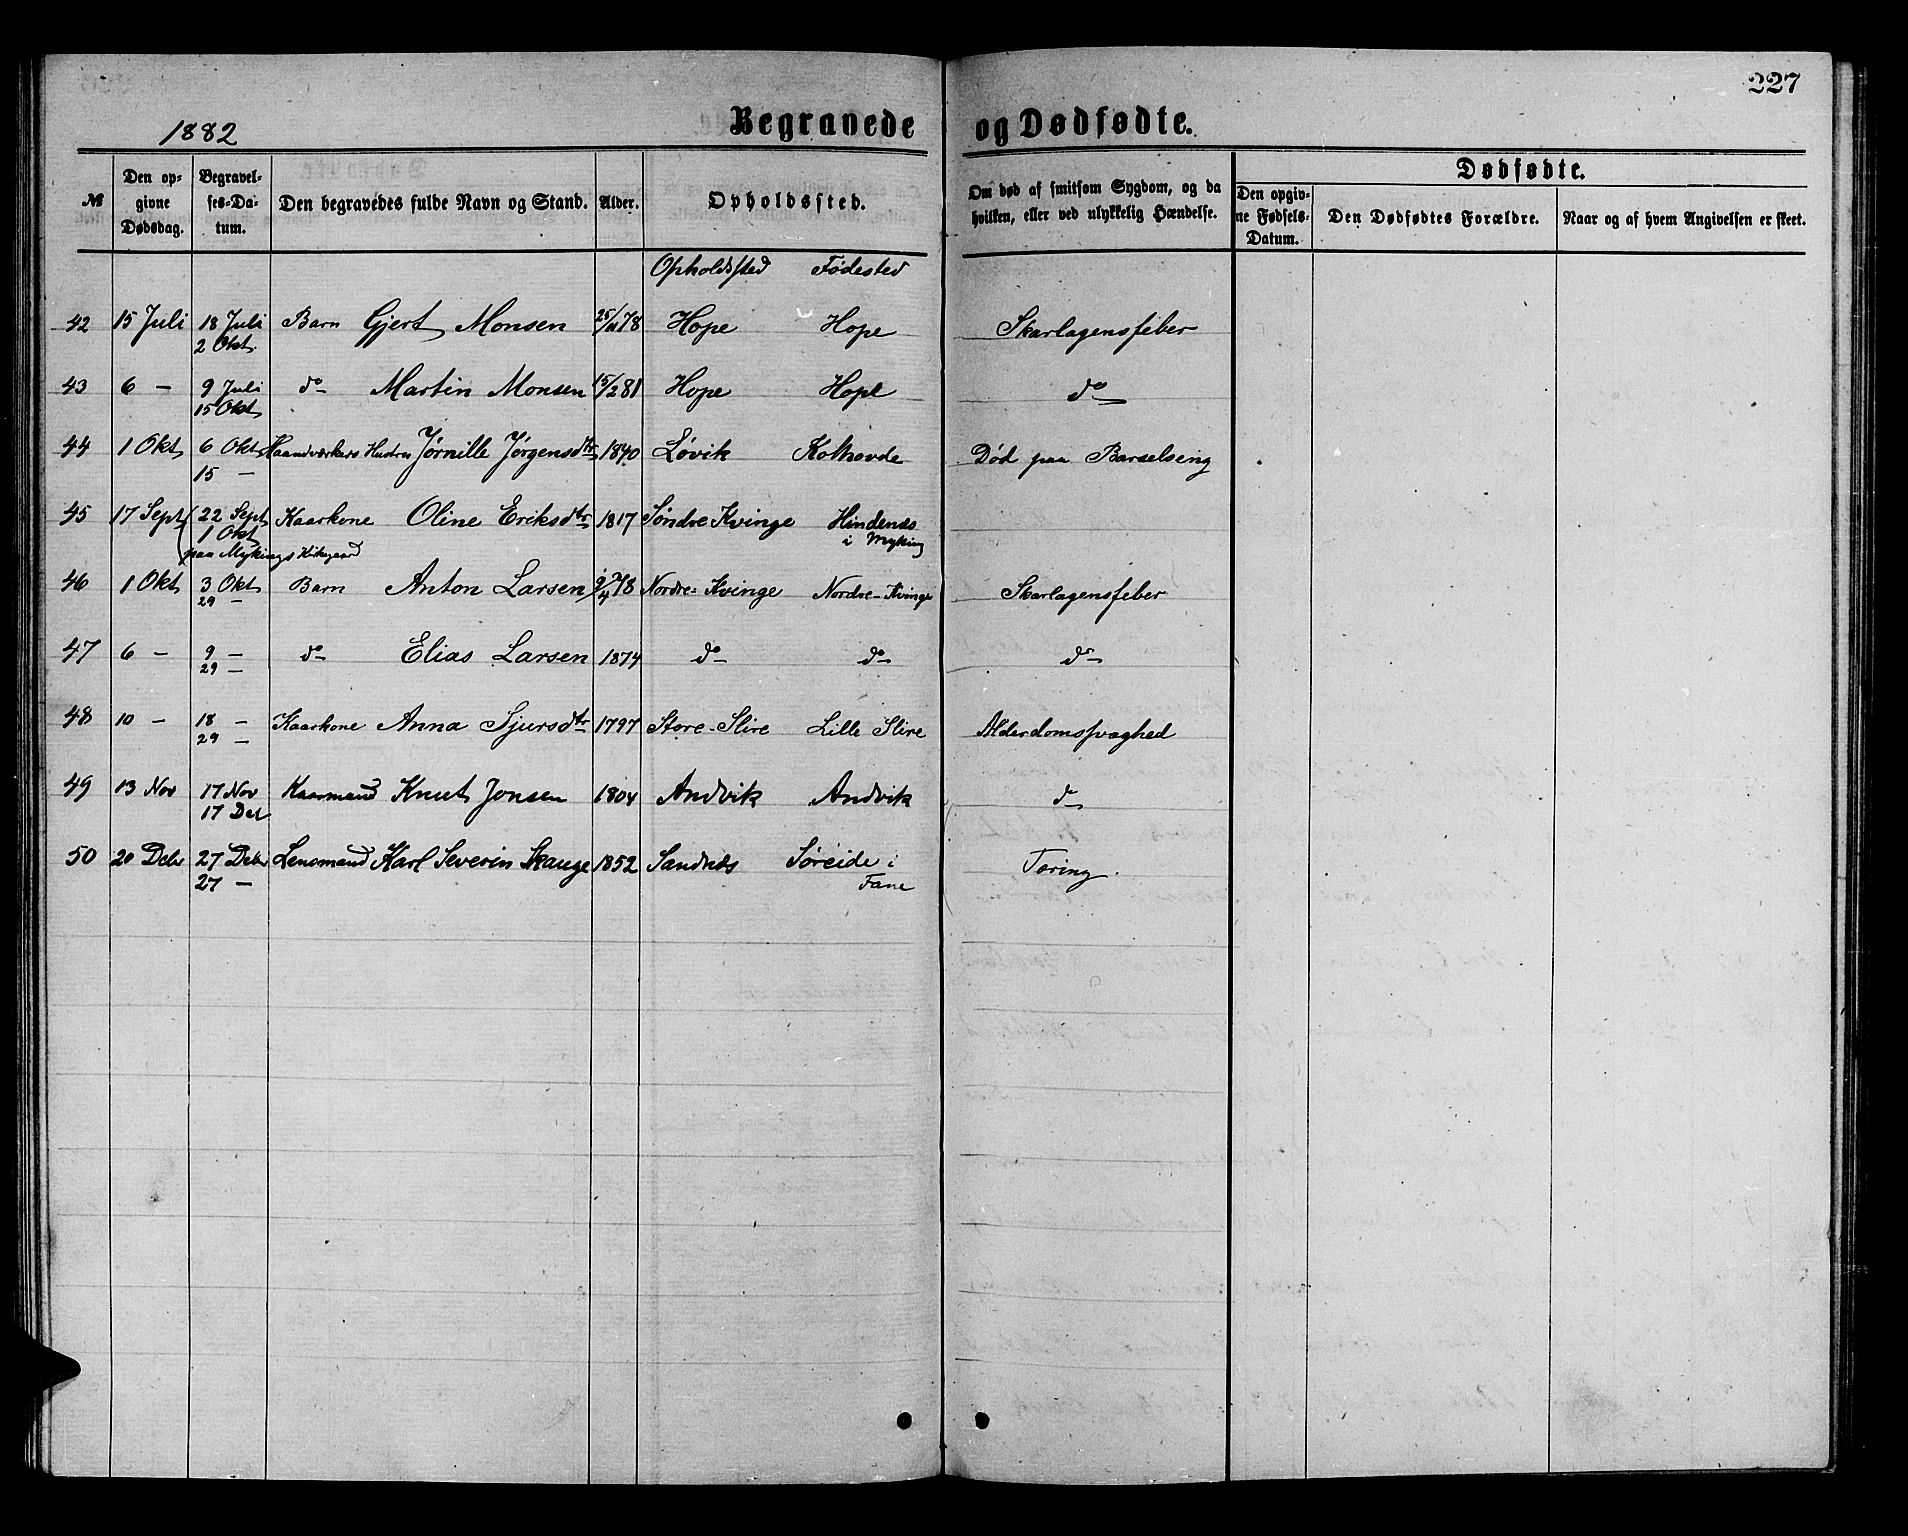 227
1882 Begravede og Dødfødte.
№ | Den opgivne Dødsdag. | Begravelses-Datum. | Den begravedes fulde Navn og Stand. | Alder. | Opholdssted. | Om død af smitsom Sygdom, og da hvilken, eller ved ulykkelig Hændelse. | Dødfødte. | Den opgivne Fødsels-Datum. | Den Dødfødtes Forældre. | Naar og af hvem Angivelsen er skeet.
Opholdssted Fødested
42 15 Juli 18 Juli Barn Gjert Monsen 25/11 78 Hope Hope Skarlagensfeber
2 Okt.
43 6 — 9 Juli do Martin Monsen 15/2 81 Hope Hope do
15 Okt
44 1 Okt 6 Okt Haandværkers Hustru Jørnille Jørgensdtr 1840 Løvik Kolhovde Død paa Barselseng
15 —
45 17 Sept 22 Sept Kaarkone Oline Eriksdtr 1817 Søndre Kvinge Hindenæs
1 Okt i Myking
paa Mykings Kirkegaard
46 1 Okt 3 Okt Barn Anton Larsen 9/4 78 Nordre-Kvinge Nordre-Kvinge Skarlagensfeber
29 —
47 6 — 9 — do Elias Larsen 1874 do do do
29 —
48 10 — 18 — Kaarkone Anna Sjursdtr 1797 Store-Slire Lille Slire Alderdomssvaghed
29 —
49 13 Nov 17 Nov Kaarmand Knut Jonsen 1804 Andvik Andvik do
17 Det
50 20 Debr 27 Debr Lensmand Karl Severin Skauge 1852 Sandnæs Søreide i Tæring.
27 — Fane